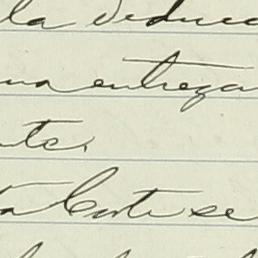 la deduc
una entrega
nte.
ta Corte se